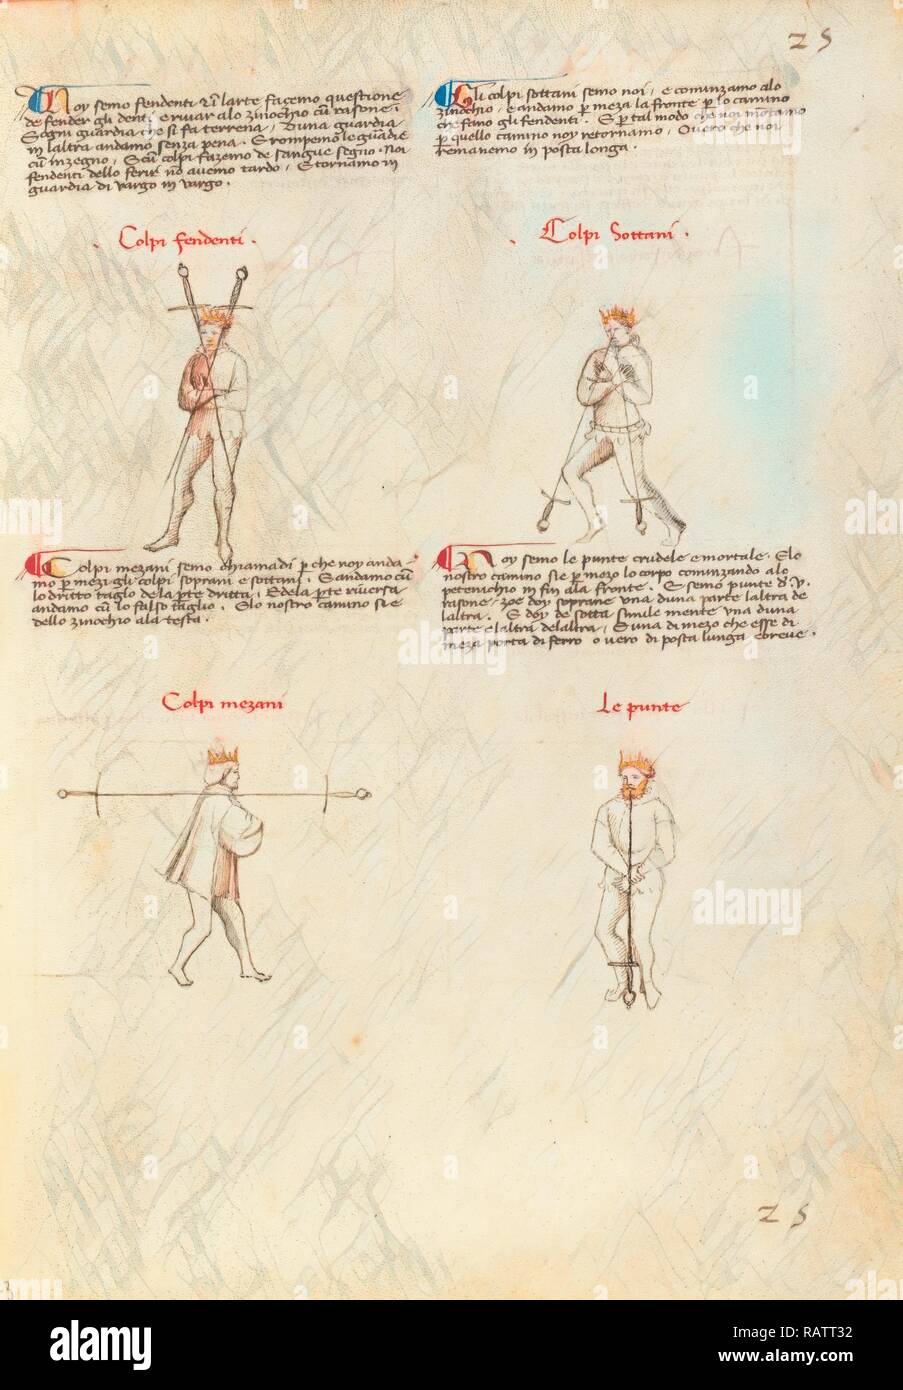 25
Noy semo fendenti e in larte façemo questione
de fender gli denti e rivar alo zinochio cum rasone.
E ogni guardia che si fa terrena, d una guardia
in laltra andamo senza pena. E rompemo le guardie
cum inzegno, E cum colpi fazemo de sangue segno. Noi
fendenti dello ferir no avemo tardo, E tornamo in
guardia di vargo in vargo.
Gli colpi sottani semo noi, e cominzamo alo
zinochio, e andamo per meza la fronte per lo camino
che fano gli fendenti. E per tal modo che noi montamo
per quello camino noy retornamo, Overo che noi
remanemo in posta longa.
Colpi fendenti.
Colpi Sottani.
Colpi mezani semo chiamadi perche noy anda-
mo per mezi gli colpi soprani e sottani. E andamo cum
lo dritto taglio de la parte dritta, E de la parte riversa
andamo cum lo falso taglio. E lo nostro camino si e
dello zinochio ala testa.
Noy semo le punte crudele e mortale. E lo
nostro camino si e per mezo lo corpo cominzando alo
petenichio in fin ala fronte. E semo punte d. V.
rasone, zoe doy soprane una d una parte laltra de
laltra. E doy de sotta simile mente una d una
parte e laltra delaltra, E una di mezo che esse di
meza porta di ferro o vero di posta lunga e breve.
Colpi mezani
Le punte
25
alamy
Image ID: RATT32
www.alamy.com